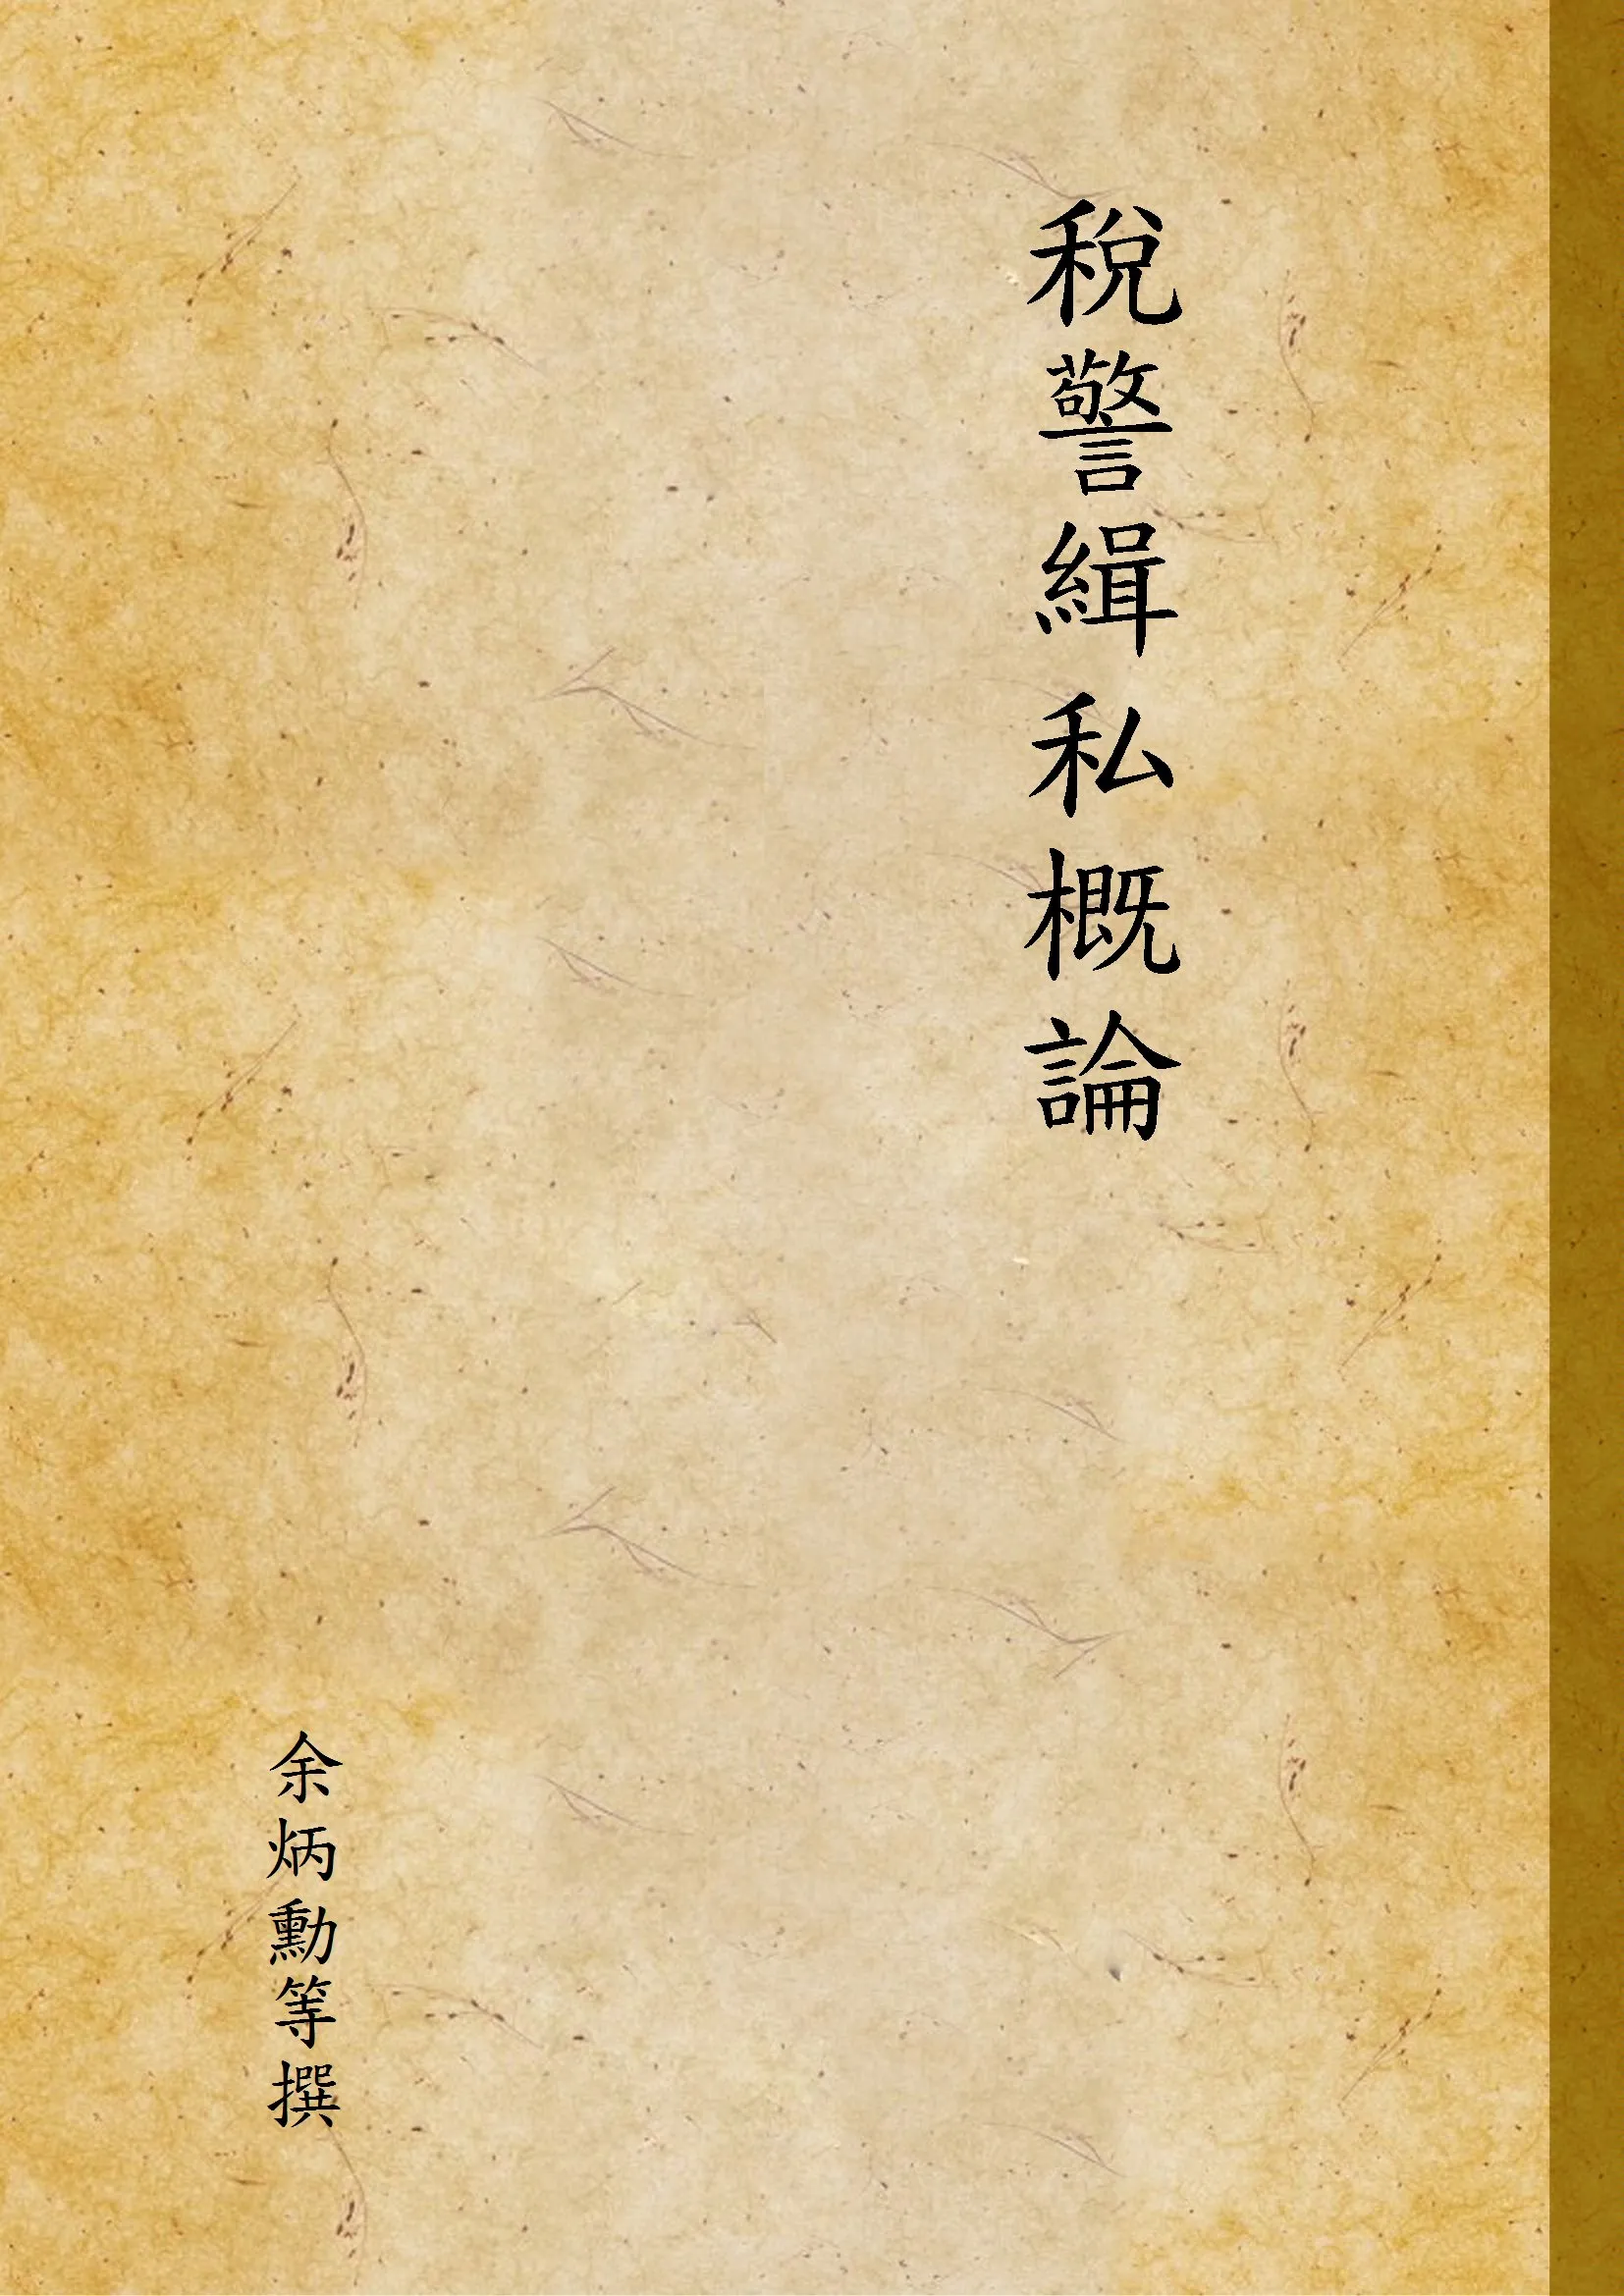 稅警緝私概論
余炳勳等撰